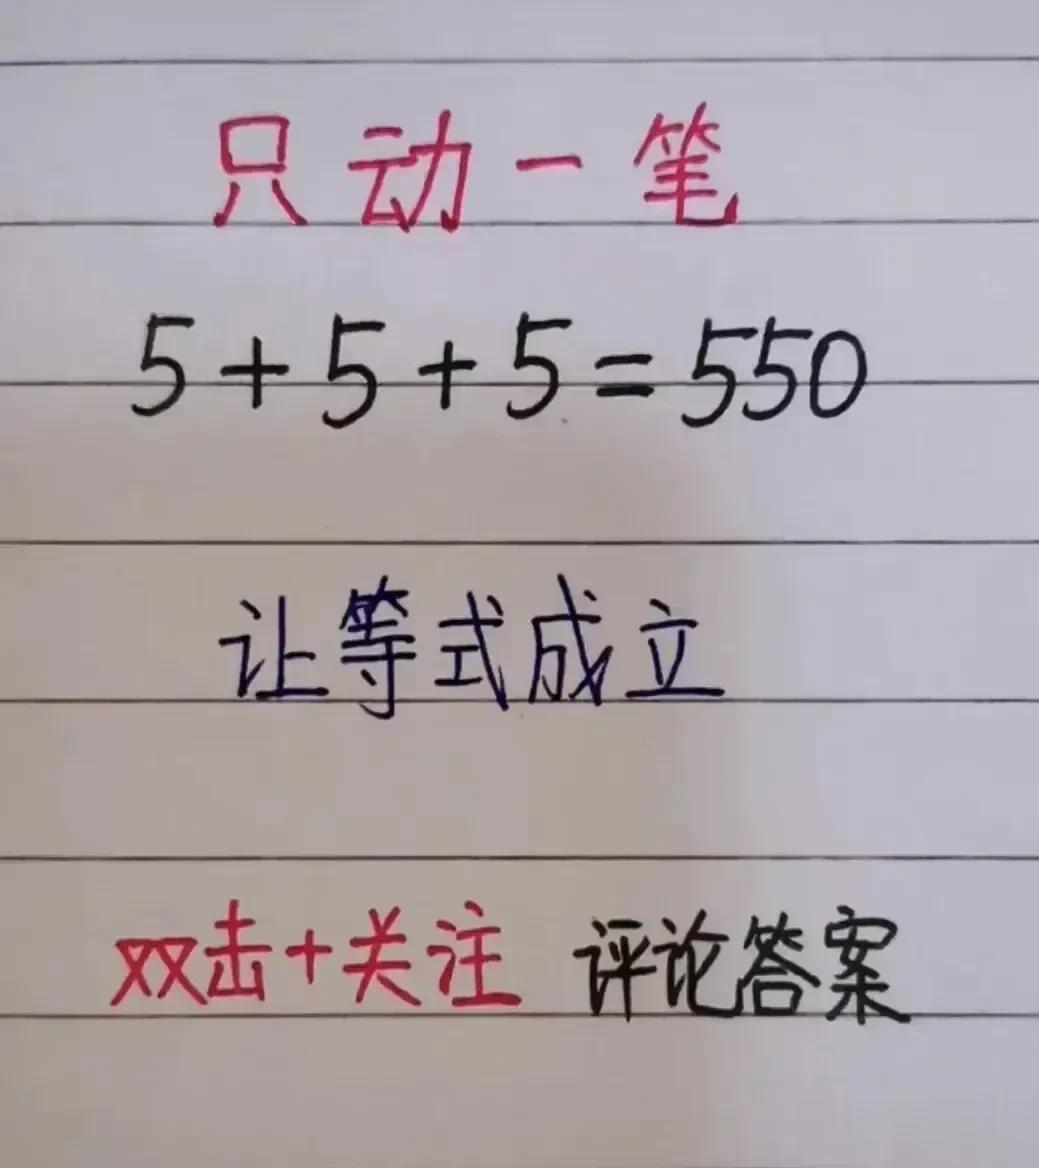 只动一笔
5+5+5=550
让等式成立
双击+关注 评论答案